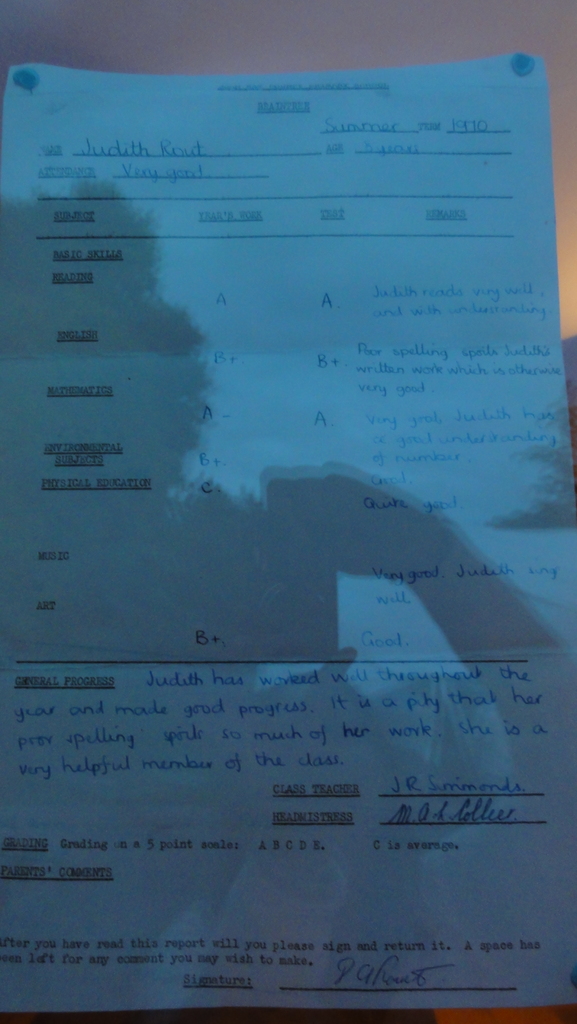 BRAINTREE
Summer TERM 1970
NAME Judith Rout AGE 8 years
ATTENDANCE Very good
SUBJECT YEAR'S WORK TEST REMARKS
BASIC SKILLS
READING
A A. Judith reads very well,
and with understanding.
ENGLISH
B+. B+. Poor spelling spoils Judith's
written work which is otherwise
very good.
MATHEMATICS
A - A. Very good. Judith has
a good understanding
of number.
ENVIRONMENTAL
SUBJECTS B+. Good.
PHYSICAL EDUCATION C. Quite good.
MUSIC
Very good. Judith sings
well
ART
B+. Good.
GENERAL PROGRESS Judith has worked well throughout the
year and made good progress. It is a pity that her
poor spelling spoils so much of her work. She is a
very helpful member of the class.
CLASS TEACHER J R Simmonds.
HEADMISTRESS M. A. L. Collier.
GRADING Grading on a 5 point scale: A B C D E. C is average.
PARENTS' COMMENTS
After you have read this report will you please sign and return it. A space has
been left for any comment you may wish to make.
Signature: